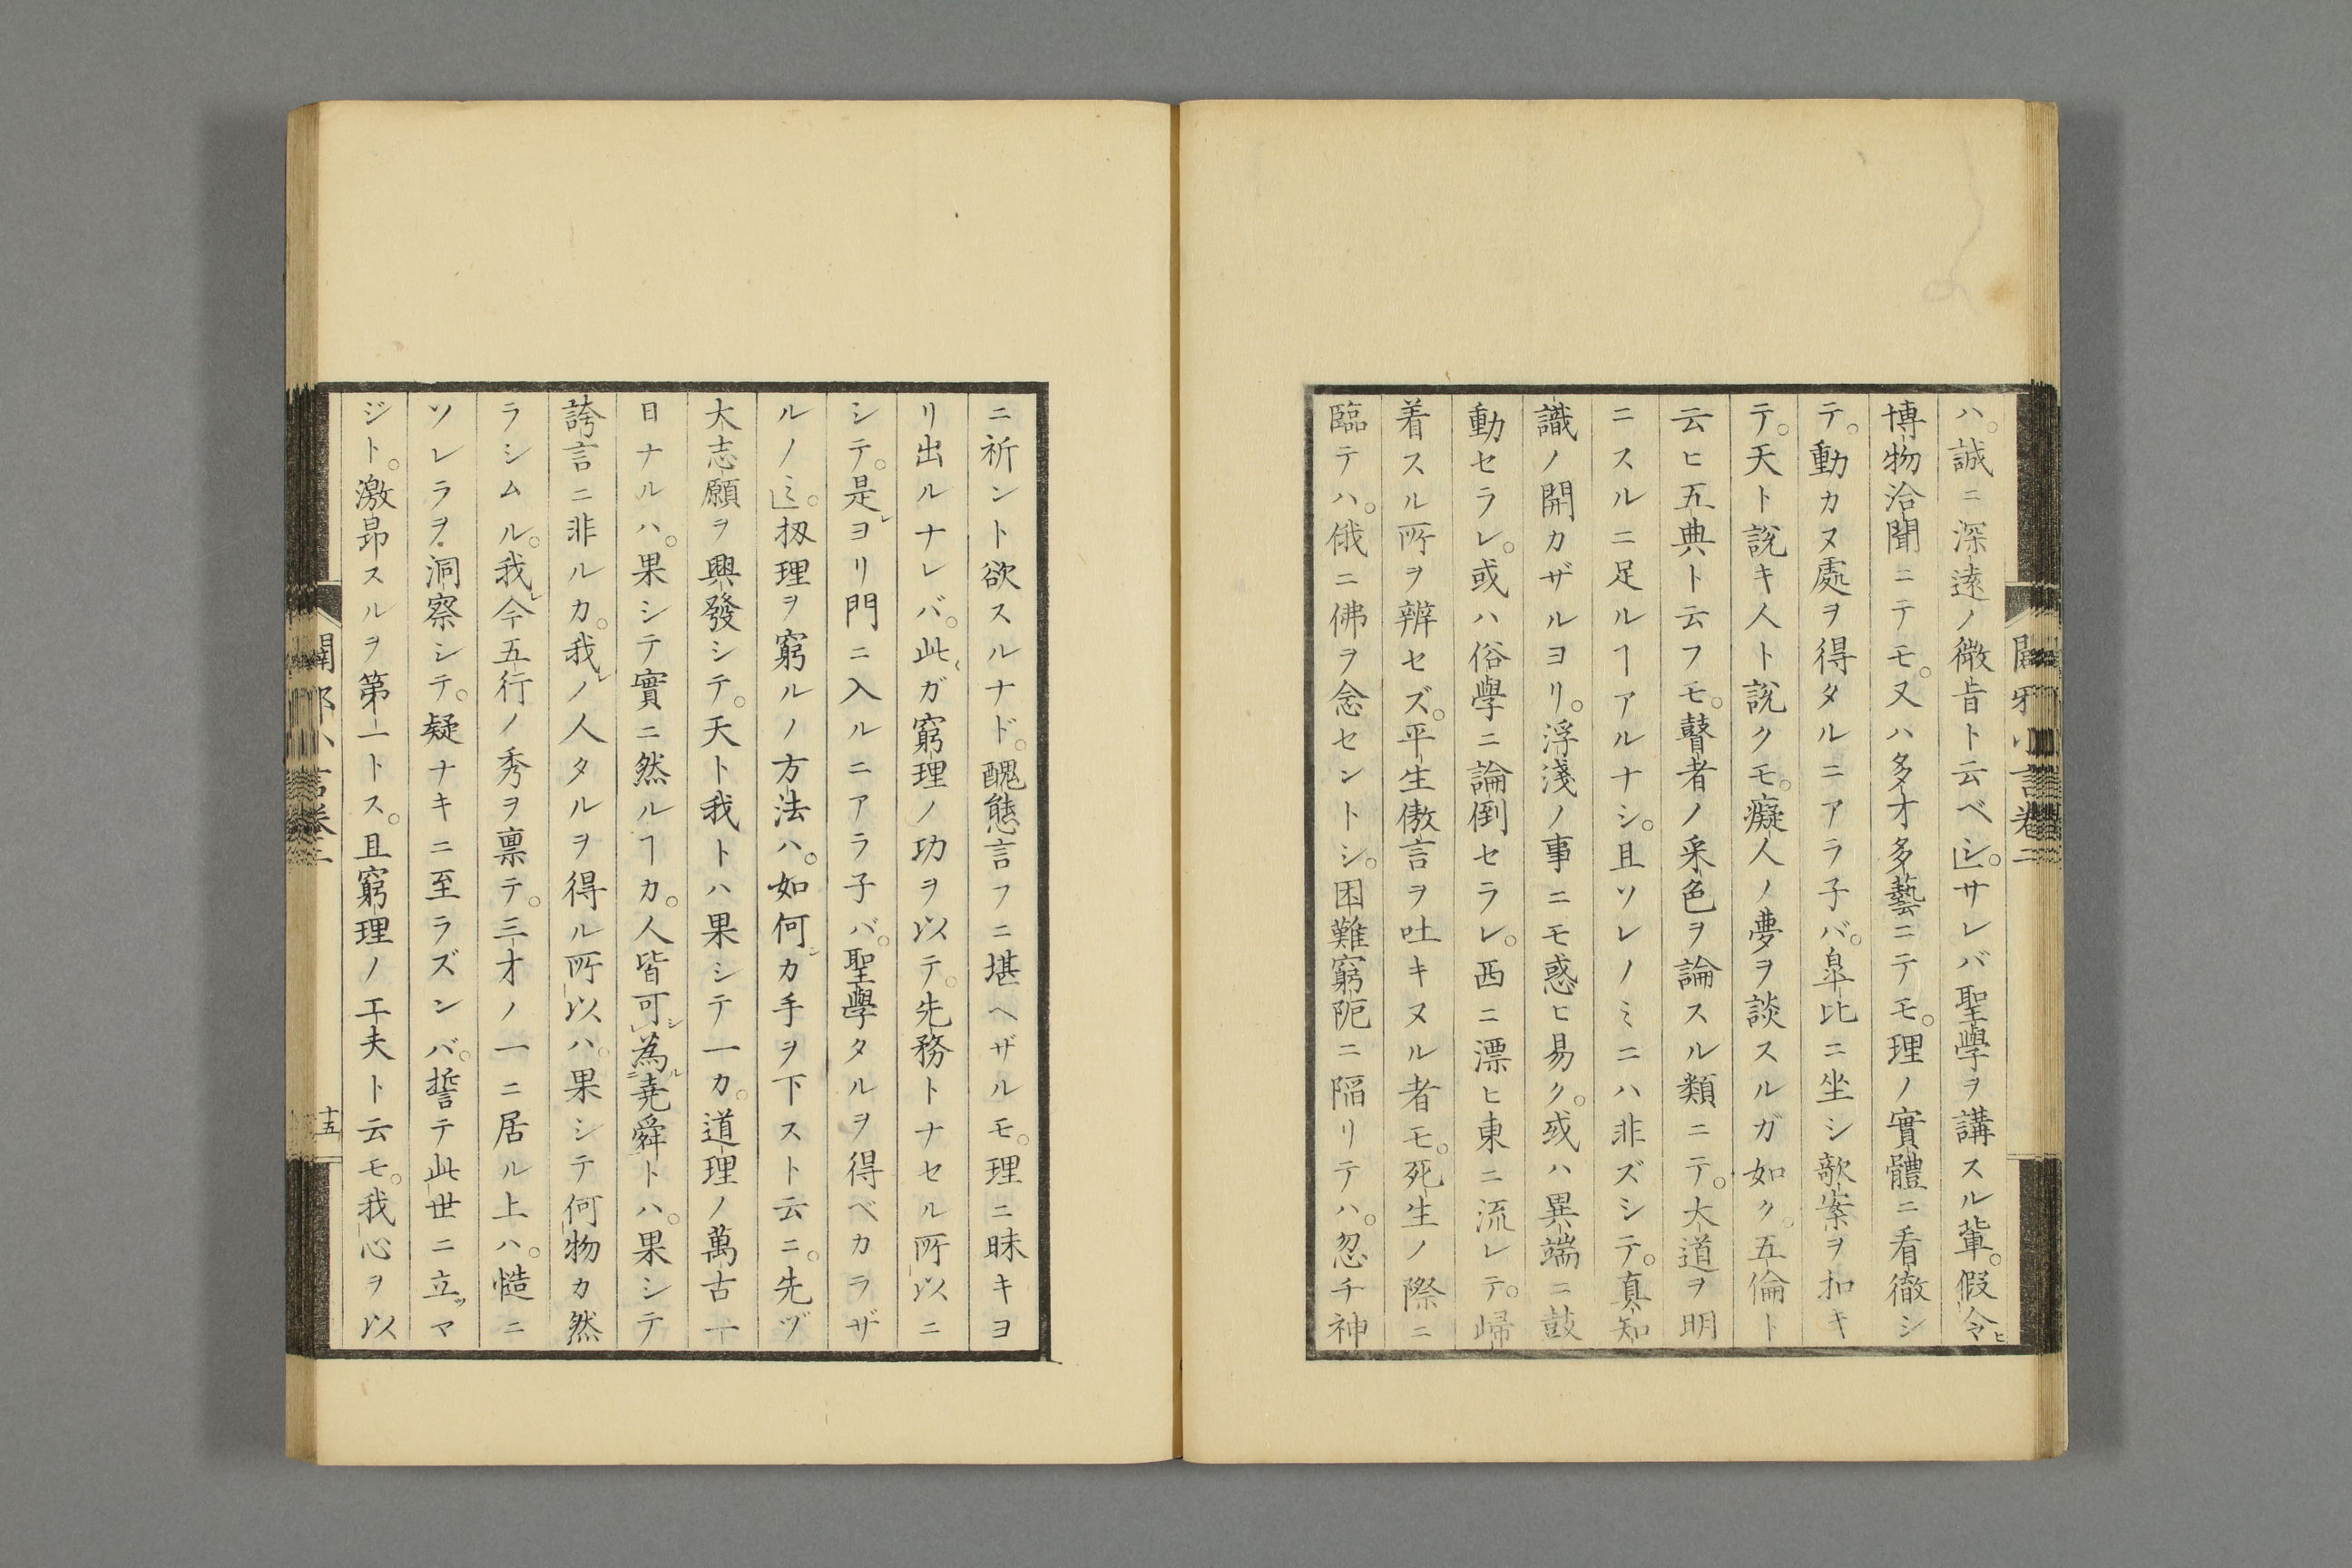 ハ。誠ニ深遠ノ微旨ト云ベシ」。サレバ聖學ヲ講スル輩。假令ヒ
博物洽聞ニテモ。又ハ多才多藝ニテモ。理ノ實體ニ看徹シ
テ。動カヌ處ヲ得タルニアラ子バ。皐比ニ坐シ歌案ヲ扣キ
テ。天ト說キ人ト說クモ。癡人ノ夢ヲ談スルガ如ク。五倫ト
云ヒ五典ト云フモ。瞽者ノ采色ヲ論スル類ニテ。大道ヲ明
ニスルニ足ルヿアルナシ。且ソレノミニハ非ズシテ。真知
識ノ開カザルヨリ。浮淺ノ事ニモ惑ヒ易ク。或ハ異端ニ鼓
動セラレ。或ハ俗學ニ論倒セラレ。西ニ漂ヒ東ニ流レテ。歸
着スル所ヲ辨セズ。平生傲言ヲ吐キヌル者モ。死生ノ際ニ
臨テハ。俄ニ佛ヲ念セントシ。困難窮阨ニ陷リテハ。忽チ神
闢邪小言卷二
ニ祈ント欲スルナド。醜態言フニ堪ヘザルモ。理ニ昧キヨ
リ出ルナレバ。此レガ窮理ノ功ヲ以テ。先務トナセル所以ニ
シテ。是レヨリ門ニ入ルニアラ子バ。聖學タルヲ得ベカラザ
ルノミ」。扨理ヲ窮ルノ方法ハ。如何ンカ手ヲ下スト云ニ。先ヅ
大志願ヲ興發シテ。天ト我トハ果シテ一カ。道理ノ萬古一
日ナルハ。果シテ實ニ然ルヿカ。人皆可シ為ル二堯舜トハ。果シテ
誇言ニ非ルカ。我レノ人タルヲ得ル所以ハ。果シテ何物カ然
ラシムル。我レ今五行ノ秀ヲ禀テ。三才ノ一ニ居ル上ハ。慥ニ
ソレラヲ洞察シテ。疑ナキニ至ラズンバ。誓テ此世ニ立ツマ
ジト。激昻スルヲ第一トス。且窮理ノ工夫ト云モ。我心ヲ以
闢邪小言卷二
十五